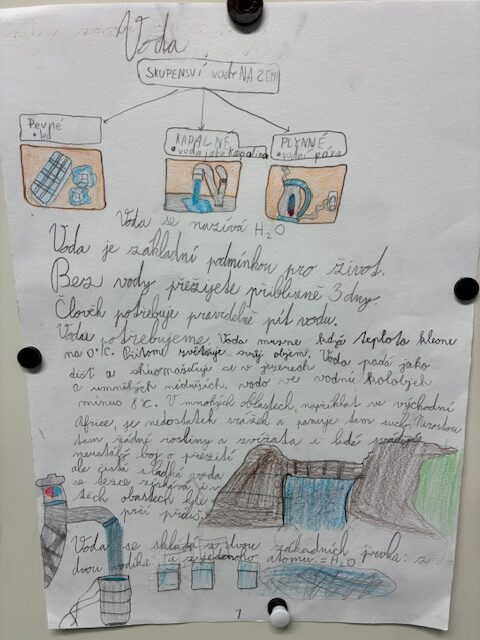 Voda
SKUPENSVÍ vody NA ZEMI
Pevné
• led
KAPALNÉ
• voda jako kapalina
PLYNNÉ
• vodní pára
Voda se nazívá H₂O
Voda je základní podmínkou pro život.
Bez vody přežijete přibližně 3 dny.
Člověk potřebuje pravdelně pít vodu.
Vodu potřebujeme. Voda mrzne když teplota klesne
na 0°C. Přitom zvětšuje svůj objem. Voda padá jako
déšť a shromažďuje se v jezerech
a umnělých nádržích,
mínus 8°C. V mnohých oblastech, například ve východní
Africe, je nedostatek srážek a panuje tam sucho. Nerostou
tam žádné rostliny a zvířata i lidé
neustálý boj o přežití
ale čistá sladká voda
se těžce získává
těch obastech
prší
Voda se skládá z dvou základních prvků: z
dvou vodíků a z jednoho atomu = H₂O
1